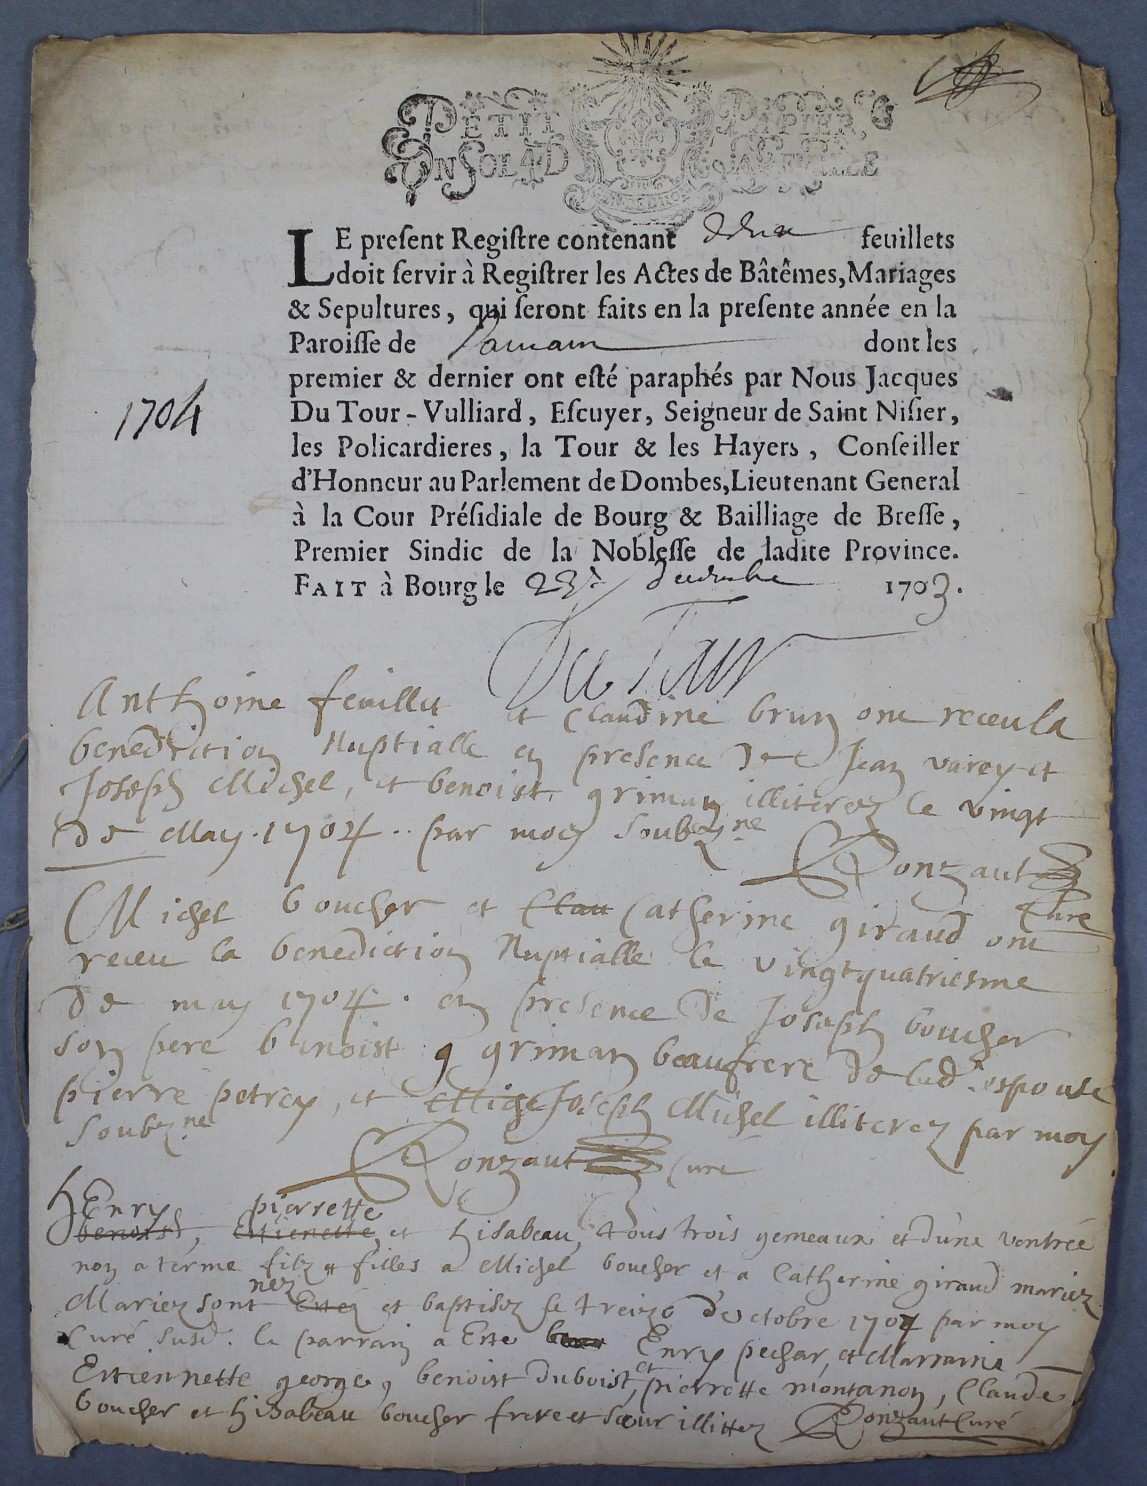 PETIT PAPIER
UN SOL 4 D LA FEUILLE
LE preſent Regiſtre contenant deux feuillets
doit ſervir à Regiſtrer les Actes de Bâtêmes, Mariages
& Sepultures, qui ſeront faits en la preſente année en la
Paroiſſe de dont les
premier & dernier ont eſté paraphés par Nous Jacques
1704
Du Tour-Vulliard, Eſcuyer, Seigneur de Saint Niſier,
les Policardieres, la Tour & les Hayers, Conſeiller
d'Honneur au Parlement de Dombes, Lieutenant General
à la Cour Préſidiale de Bourg & Bailliage de Breſſe,
Premier Sindic de la Nobleſſe de ladite Province.
FAIT à Bourg le 23e decembre 1703.
Du Tour
Anthoine feuillet et Claudine brun ont receu la
benediction Nuptialle en presence de Jean varey et
Joseph Michel, et benoist griman illiterez le vingt
de May 1704 .. par moy soubzne
Ronzaut
Curé
Michel boucher et Clau Catherine giraud ont
receu la benediction Nuptialle le vingtquatriesme
de may 1704. en presence de Joseph boucher
son pere benoist g griman beaufrere de lad. espouse
pierre petrey, et Miche Joseph Michel illiterez par moy
soubzne
Ronzaut Curé
hEnry pierrette
benoist, Estienette et hisabeau, tous trois gemeaux et d'une ventrée
non a terme filz et filles a Michel boucher et a Catherine giraud mariez
nez
Mariez sont Estéz et baptisez le treize d'octobre 1704 par moy
Curé susd. le parrain a Este Enry pechar, et Marraine
Estiennette george, benoist duboist, et pierrette montanon, Claude
boucher et hisabeau boucher frere et sœur illittez Ronzaut Curé